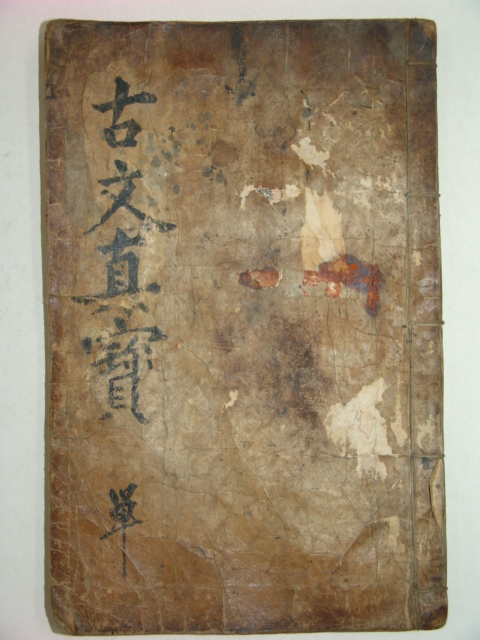 古文真寶
單